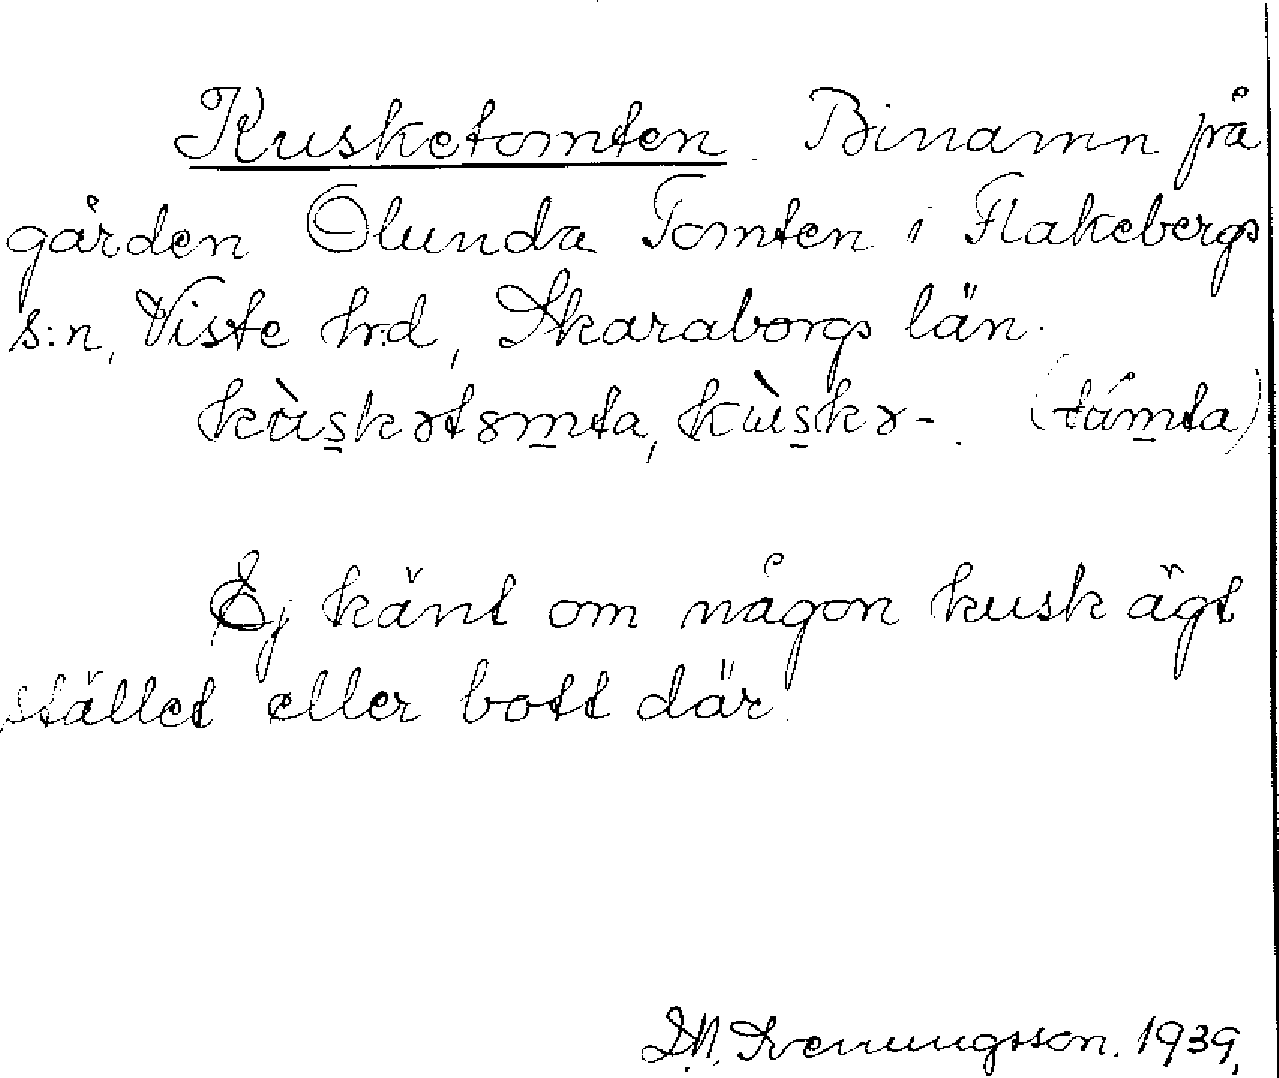 Kusketomten. Binamn på
gården Olunda Tomten i Flakebergs
s:n, Viste hrd, Skaraborgs län.
kùs̲kɤt8m̲ta, kùs̲kɤ-. (tám̲ta)
Ej känt om någon kusk ägt
stället eller bott där.
Svenungsson. 1939.